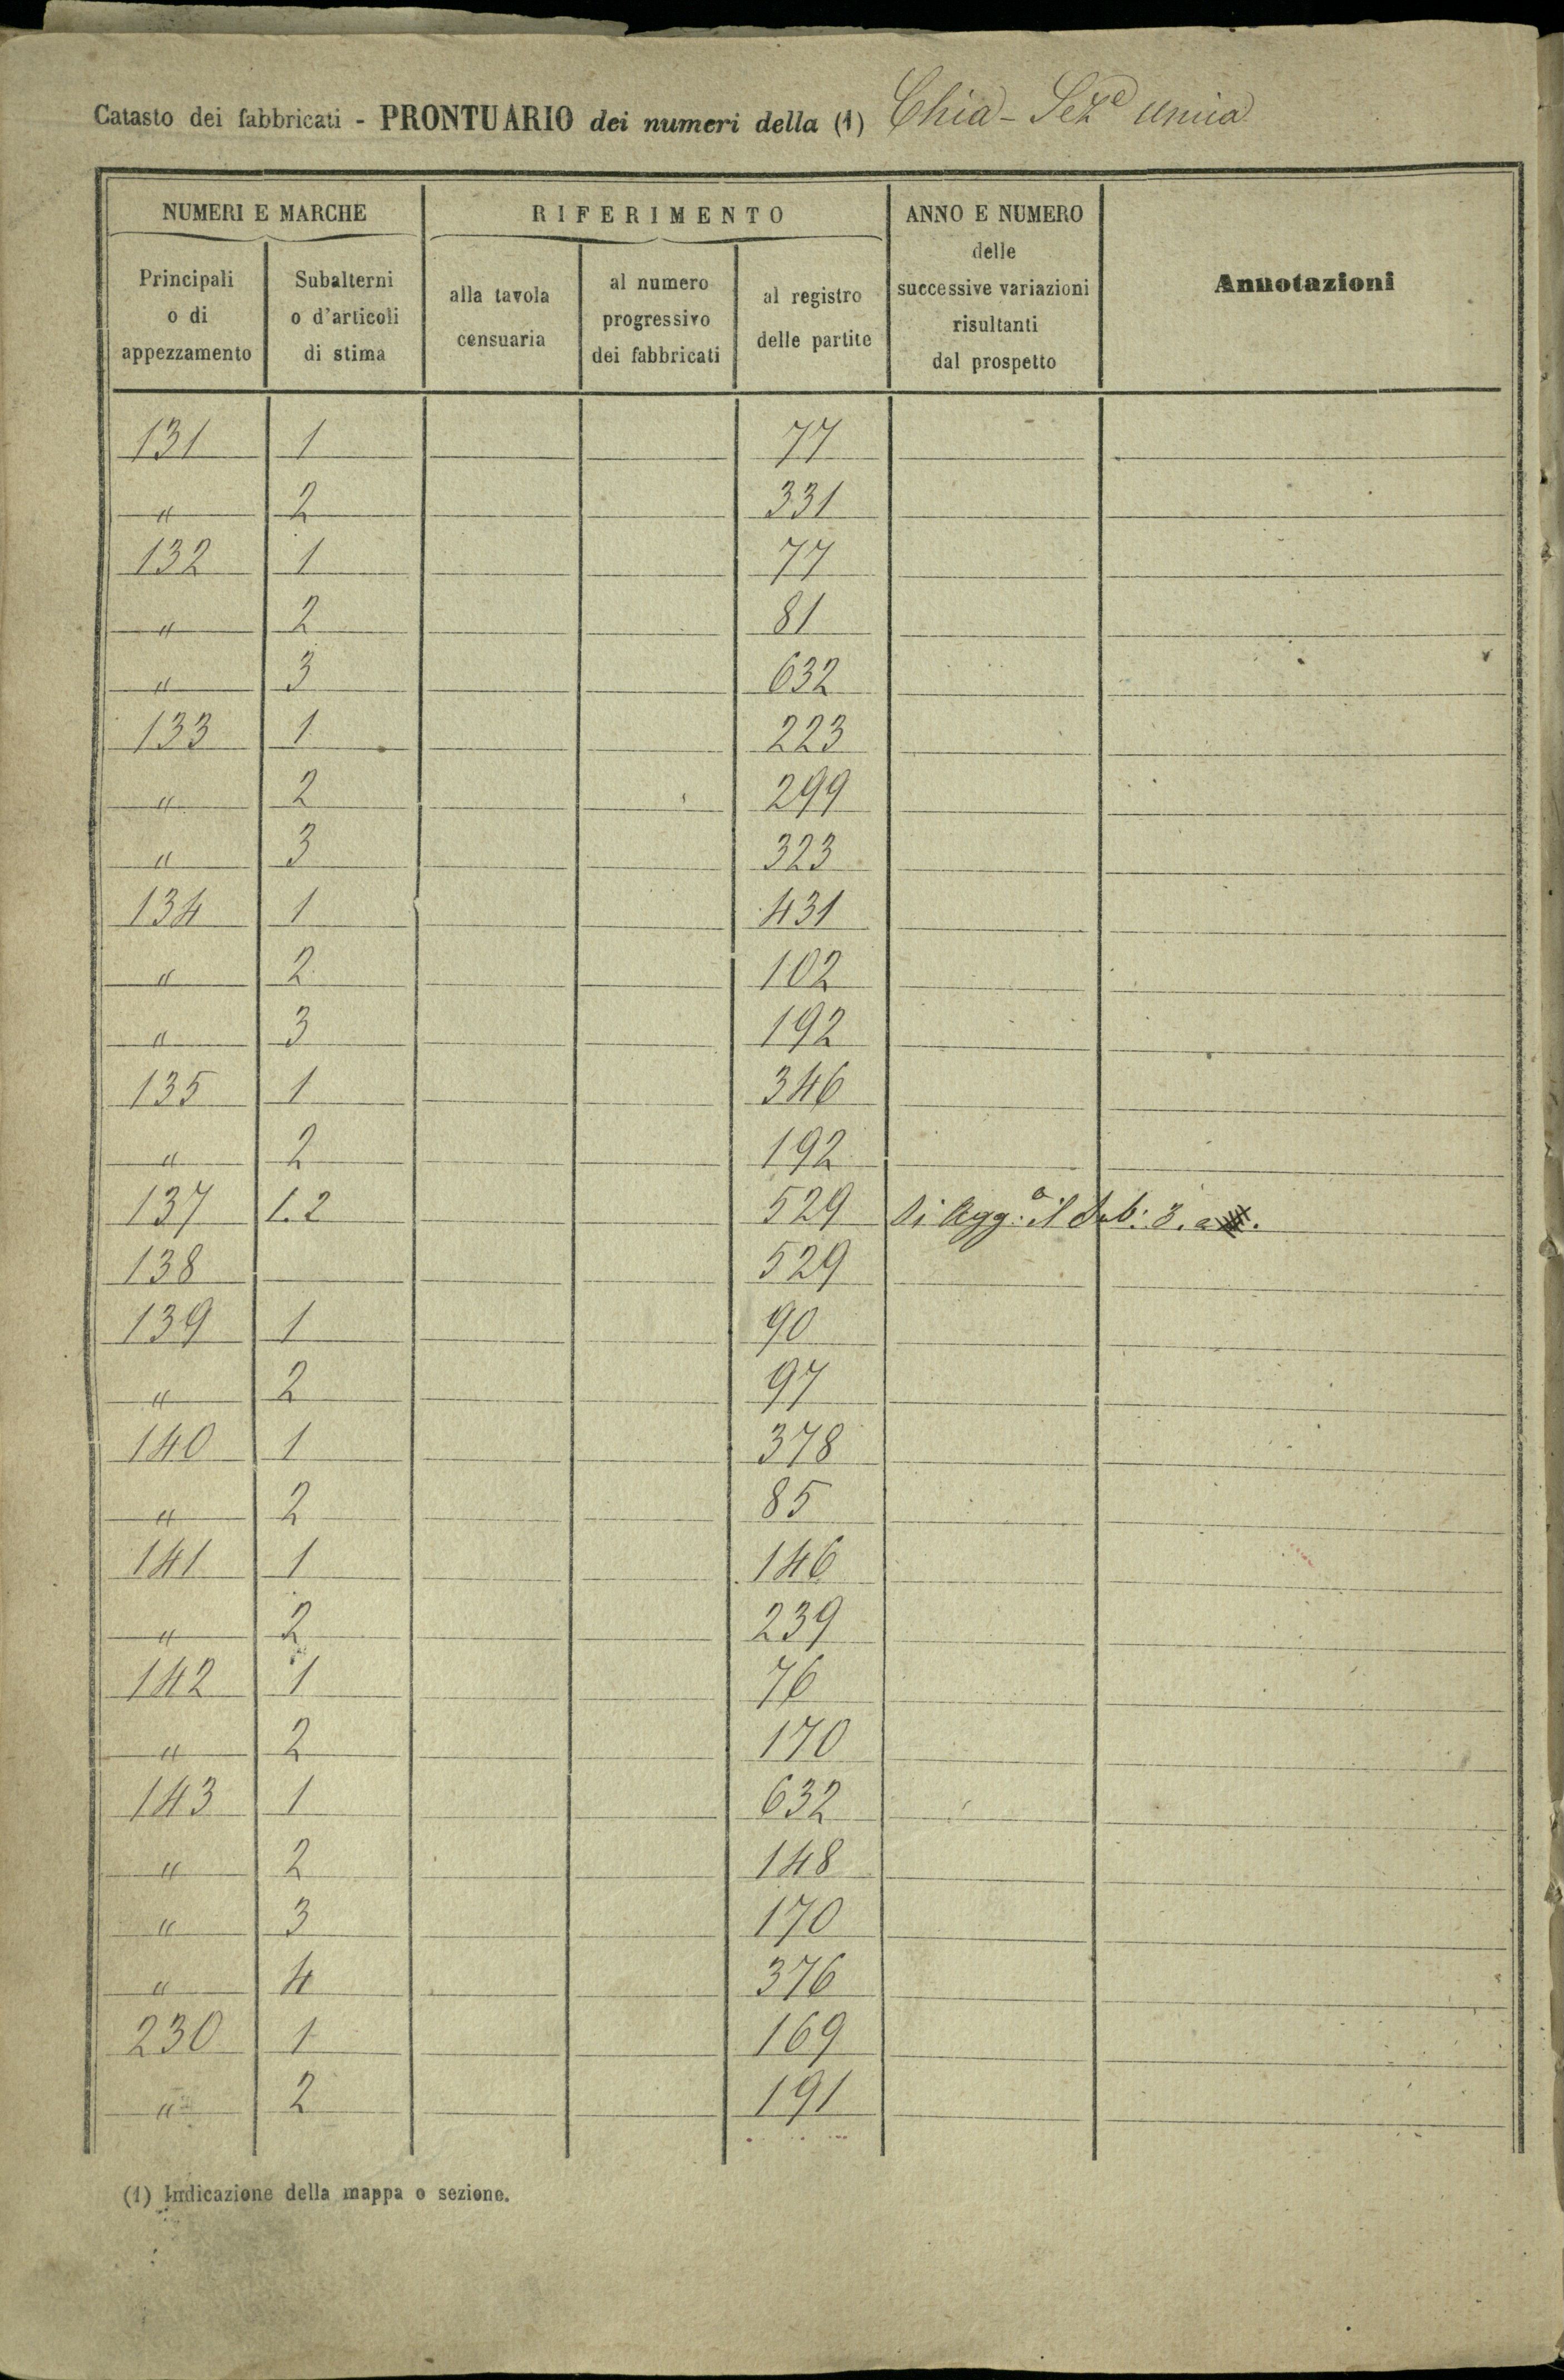 Catasto dei fabbricati - PRONTUARIO dei numeri della (1) Chia - Sez.e unica
NUMERI E MARCHE
RIFERIMENTO
ANNO E NUMERO
delle
successive variazioni
risultanti
dal prospetto
Annotazioni
Principali
o di
appezzamento
Subalterni
o d'articoli
di stima
alla tavola
censuaria
al numero
progressivo
dei fabbricati
al registro
delle partite
131 1 77
" 2 331
132 1 77
" 2 81
" 3 632
133 1 223
" 2 299
" 3 323
134 1 431
" 2 102
" 3 192
135 1 346
" 2 192
137 1.2 529 Si Agg: il Sub: 3.
138 529
139 1 90
" 2 97
140 1 378
" 2 85
141 1 146
" 2 239
142 1 76
" 2 170
143 1 632
" 2 148
" 3 170
" 4 376
230 1 169
" 2 191
(1) Indicazione della mappa o sezione.